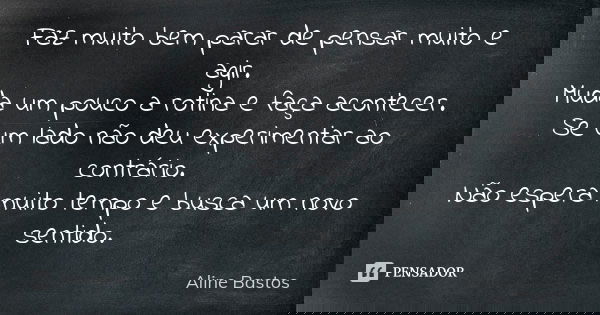 Faz muito bem parar de pensar muito e
agir.
Muda um pouco a rotina e faça acontecer.
Se um lado não deu experimentar ao
contrário.
Não espera muito tempo e busca um novo
sentido.
PENSADOR
Aline Bastos